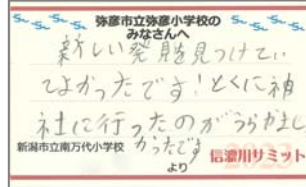 弥彦市立弥彦小学校の
みなさんへ
新しい発見を見つけてい
てよかったです！とくに神
社に行ったのがうらやまし
かったです
新潟市立南万代小学校
より
信濃川サミット
2023